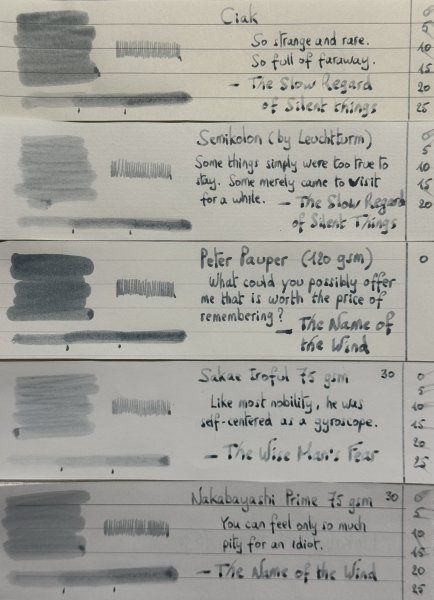 Ciak
So strange and rare.
So full of faraway.
– The Slow Regard
of Silent things
0
5
10
15
20
25
Semikolon (by Leuchtturm)
Some things simply were too true to
stay. Some merely came to visit
for a while. – The Slow Regard
of Silent Things
0
5
10
15
20
Peter Pauper (120 gsm)
What could you possibly offer
me that is worth the price of
remembering? – The Name of
the Wind
0
Sakae Iroful 75 gsm 30
Like most nobility, he was
self-centered as a gyroscope.
– The Wise Man's Fear
0
5
10
15
20
25
Nakabayashi Prime 75 gsm 30
You can feel only so much
pity for an idiot.
– The Name of the Wind
0
5
10
15
20
25